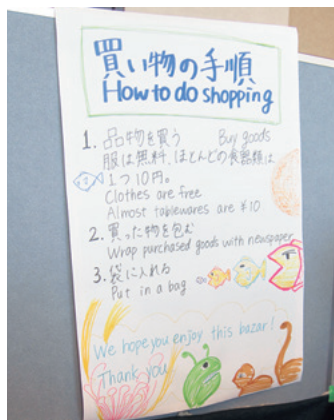 買い物の手順
How to do shopping
1. 品物を買う Buy goods
服は無料、ほとんどの食器類は
1つ10円。
Clothes are free
Almost tablewares are ¥10
2. 買った物を包む
Wrap purchased goods with newspaper
3. 袋に入れる
Put in a bag
We hope you enjoy this bazar!
Thank you